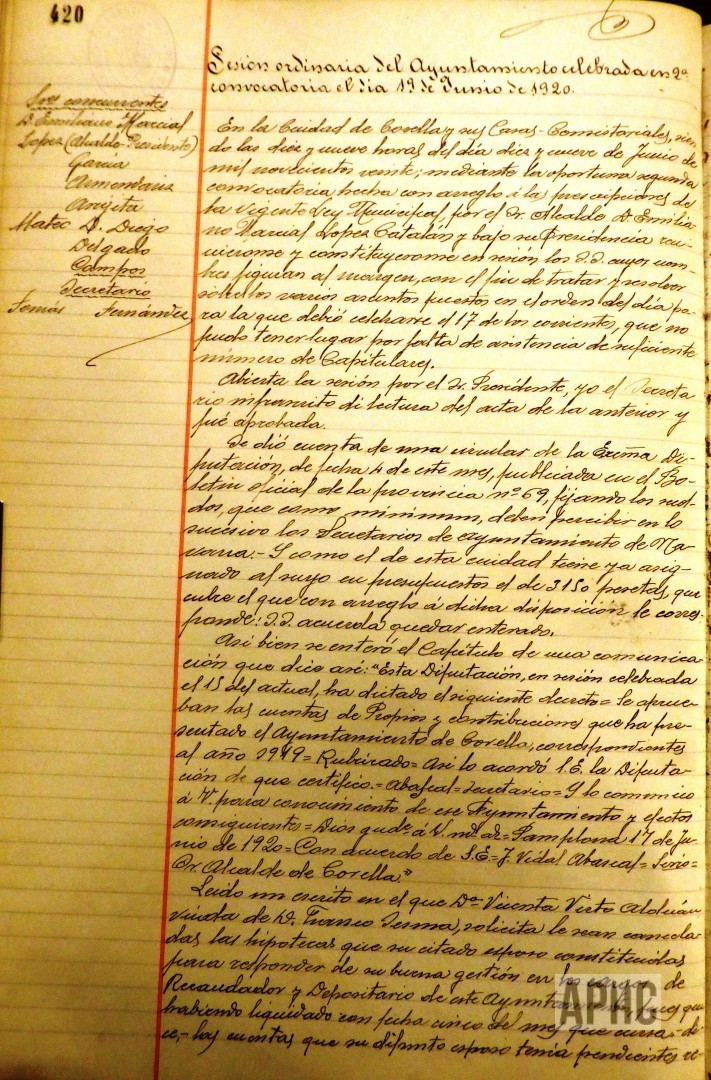 420
Sesión ordinaria del Ayuntamiento celebrada en 2ª
convocatoria el dia 19 de Junio de 1920.
Sres concurrentes
D. Emiliano Marcial
Lopez (Alcalde-Presidente)
Garcia
Armendariz
Arejita
Mateo D. Diego
Delgado
Campos
Secretario
Tomás Fernández
En la Ciudad de Corella y sus Casas-Consistoriales, sien-
do las diez y nueve horas del día diez y nueve de Junio de
mil novecientos veinte; mediante la oportuna segunda
convocatoria hecha con arreglo á las prescripciones de
la vigente Ley Municipal, por el Sr. Alcalde D. Emilia-
no Marcial Lopez Catalán y bajo su Presidencia reu-
nieronse y constituyeronse en sesión los S.S. cuyos nom-
bres figuran al margen, con el fin de tratar y resolver
sobre los varios asuntos puestos en el orden del día pa-
ra la que debió celebrarse el 17 de los corrientes, que no
pudo tener lugar por falta de asistencia de suficiente
número de Capitulares.
Abierta la sesión por el Sr. Presidente, yo el Secreta
rio infrascrito di lectura del acta de la anterior y
fué aprobada.
Se dió cuenta de una circular de la Excma Di-
putación, de fecha 4 de este mes, publicada en el Bo-
letin oficial de la provincia nº 69, fijando los suel-
dos, que como minimum, deben percibir en lo
sucesivo los Secretarios de ayuntamiento de Na-
varra.- Y como el de esta ciudad tiene ya asig-
nado al suyo en presupuestos el de 3150 pesetas, que
cubre el que con arreglo á dicha disposición le corres-
ponde: S.S. acuerda quedar enterado.
Asi bien se enteró el Capítulo de una comunica-
ción que dice asi: "Esta Diputación, en sesión celebrada
el 15 del actual, ha dictado el siguiente decreto= Se aprue-
ban las cuentas de Propios y contribuciones que ha pre-
sentado el Ayuntamiento de Corella, correspondientes
al año 1919= Rubricado= Asi lo acordó S.E. la Diputa-
ción de que certifico.= Abascal= Secretario= Y lo comunico
á V. para conocimiento de ese Ayuntamiento y efectos
consiguientes= Dios gude á V. ms as= Pamplona 17 de Ju-
nio de 1920= Con acuerdo de S.E= J. Vidal Abascal= Srio=
Sr. Alcalde de Corella."
Leido un escrito en el que Dª Vicenta Virto
viuda de D. Franco Sesma, solicita le sean cancela-
das las hipotecas que su citado esposo constituidas
para responder de su buena gestión en los cargos de
Recaudador y Depositario de este Ayuntam
habiendo liquidado con fecha cinco del mes que cursa,- di-
ce,- las cuentas que su difunto esposo tenía pendientes re
APHC